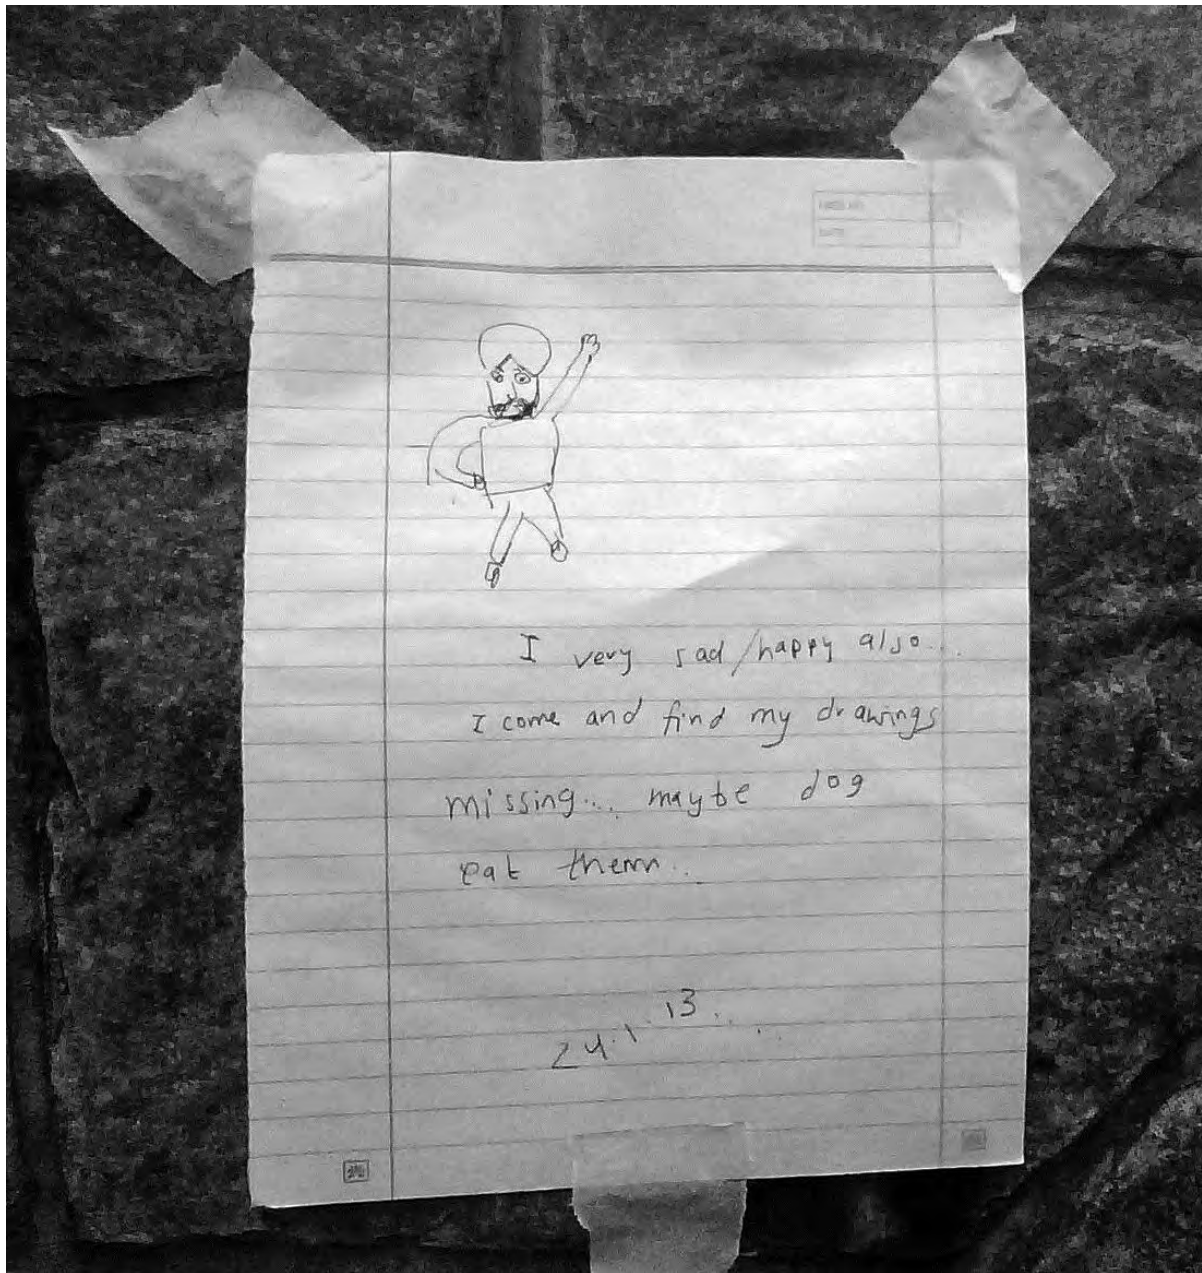 DATE
I very sad/happy also...
I come and find my drawings
missing... maybe dog
eat them..
24.1.13...